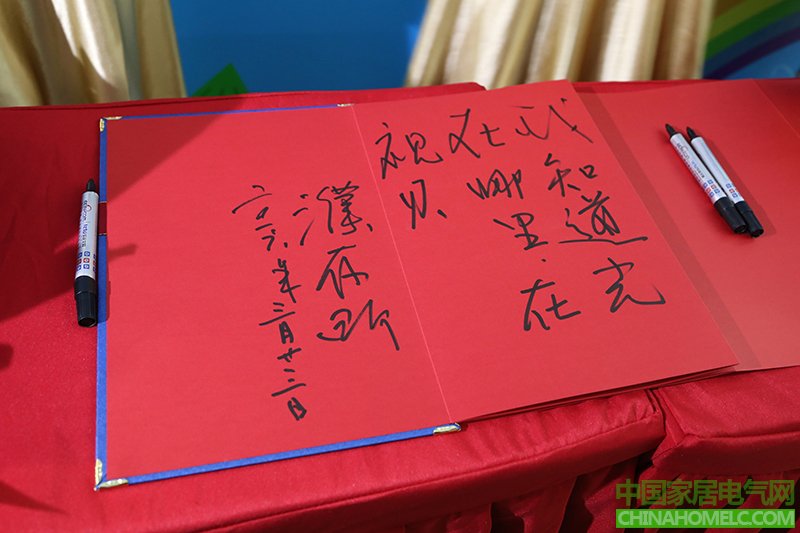 我知道光
在哪里·在
视贝
濮存昕
二〇一六年三月廿三日
中国家居电气网
CHINAHOMELC.COM